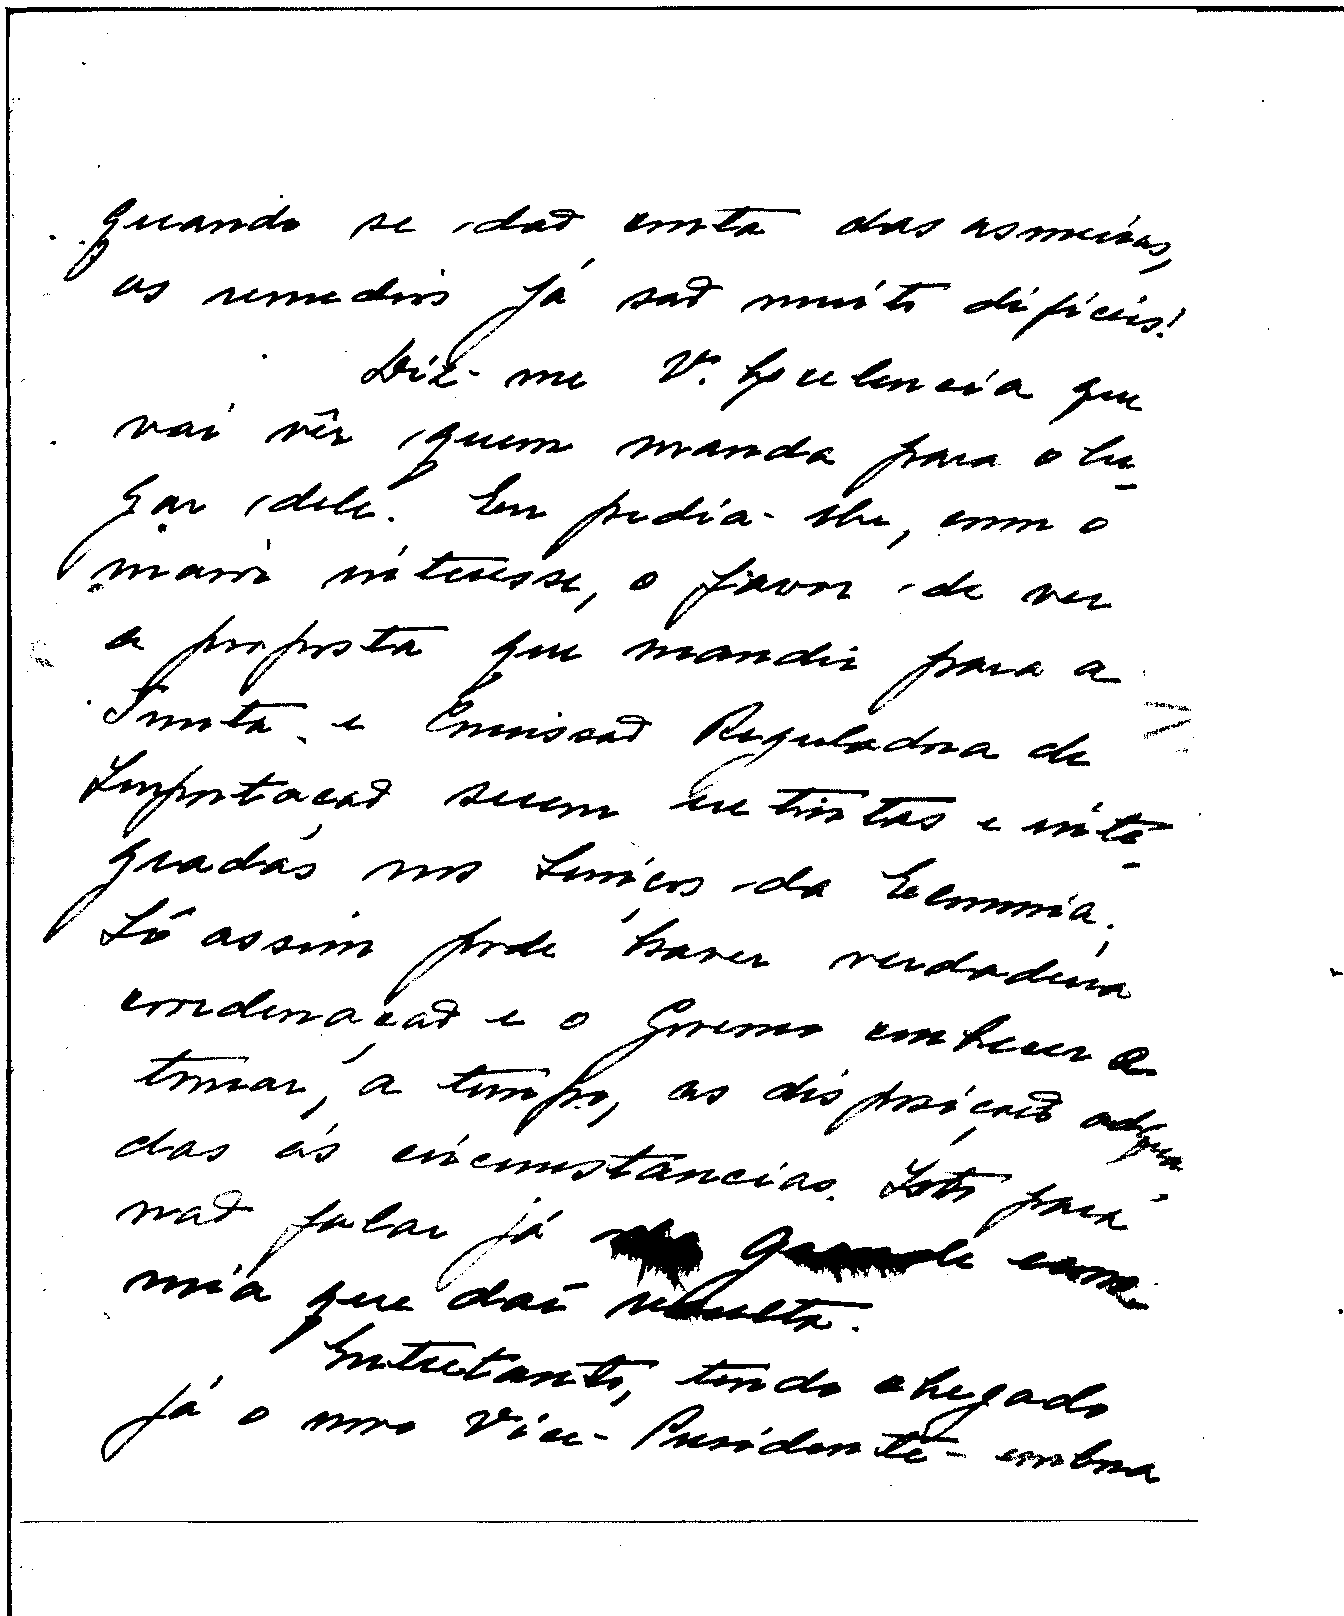 quando se dão conta das asneiras,
os remedios já são muito dificeis!
Diz-me V. Excelencia que
vai vêr quem manda para o lu-
gar dele. Eu pedia-lhe, com o
maior interesse, o favor de ver
a proposta que mandei para a
Junta e Comissão Reguladora de
Importação serem extintas e inte-
gradas nos Serviços da Economia.
Só assim pode haver verdadeira
coordenação e o Governo conhecer e
tomar, a tempo, as disposições adequa-
das ás circunstancias. Isto para
não falar já na grande econo-
mia que daí resulta.
Entretanto, tendo chegado
já o novo Vice-Presidente - embora